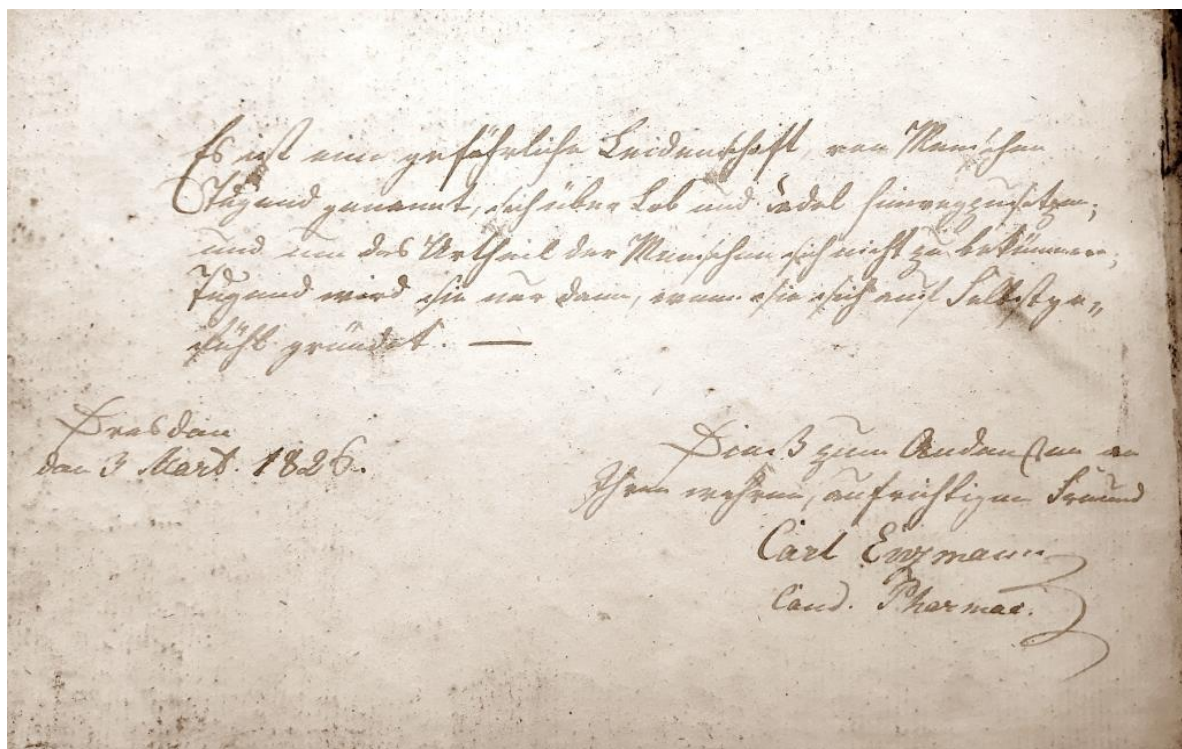 Es ist eine gefährliche Leidenschaft, von Menschen
Tugend genannt, sich über Lob und Tadel hinwegzusetzen,
und um das Urtheil der Menschen sich nicht zu bekümmern;
Tugend wird sie nur dann, wenn sie sich auf Selbstge„
fühl gründet. —
Dresden
den 3 Mart. 1826.
Dieß zum Andenken an
Ihren wahren, aufrichtigen Freund
Carl
Cand. Pharmac.